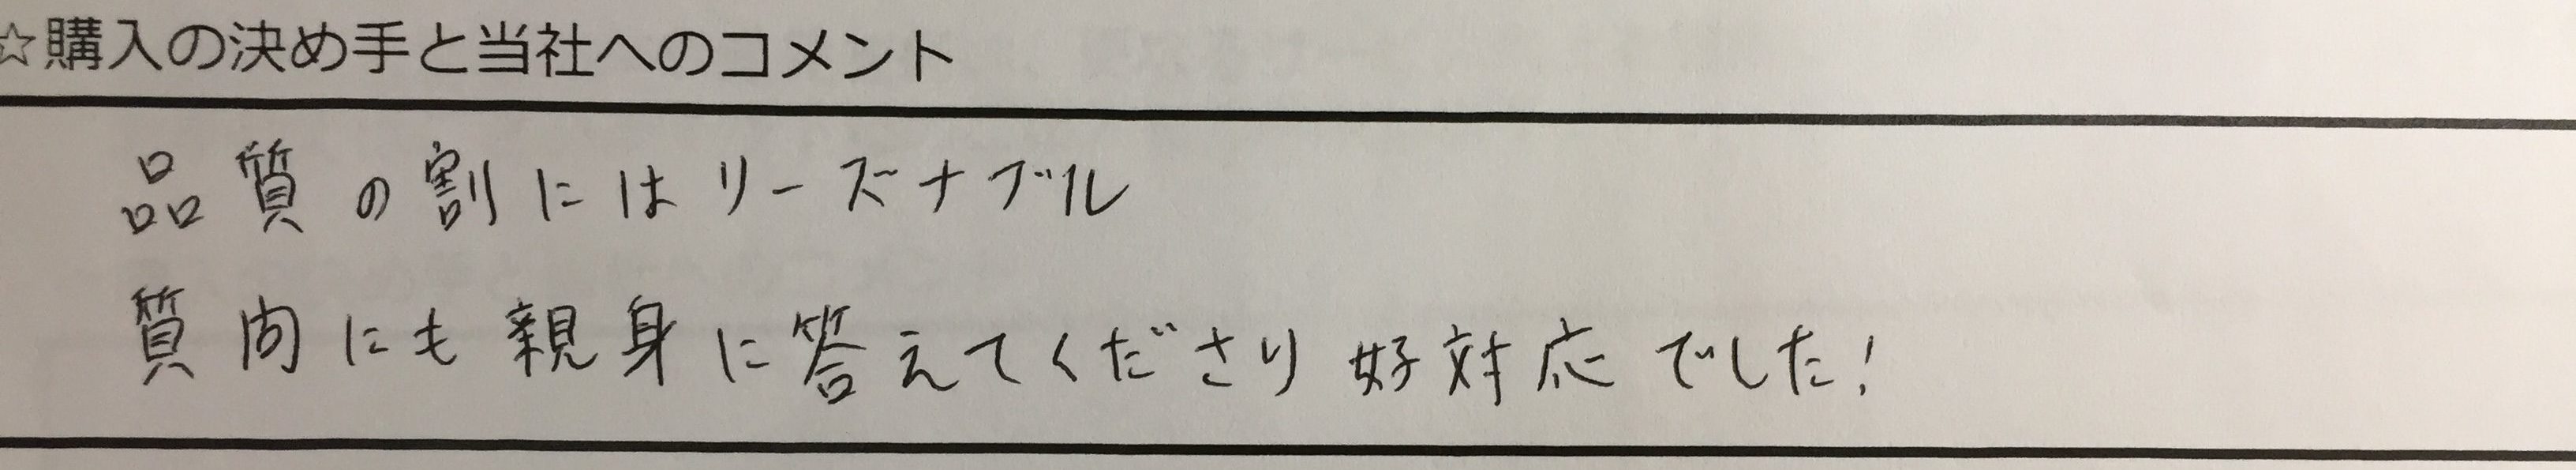 ☆購入の決め手と当社へのコメント
品質の割にはリーズナブル
質問にも親身に答えてくださり好対応でした!